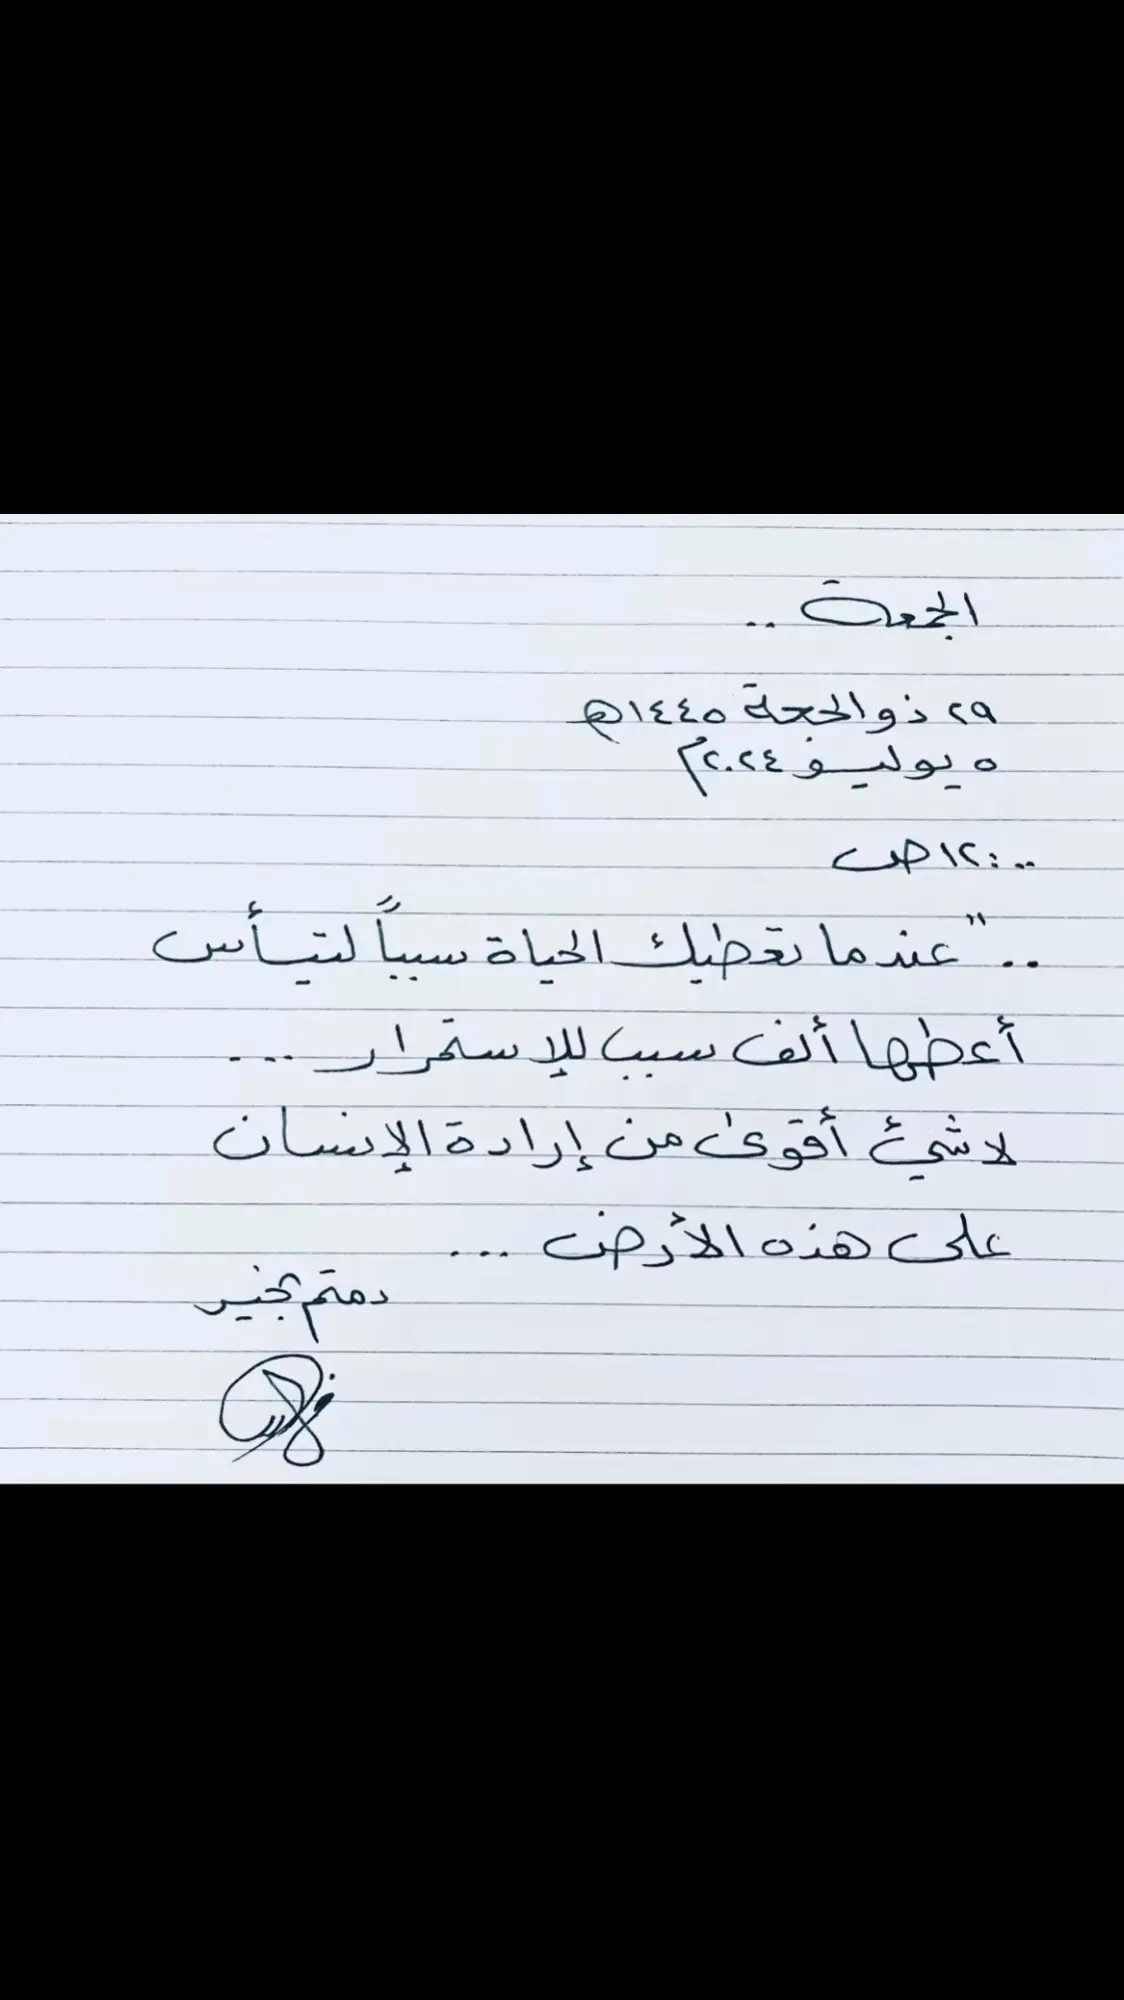 الجمعة ..
٢٩ ذو الحجة ١٤٤٥هـ
٥ يوليو ٢٠٢٤م
١٢:٠٠ص
.. "عندما تعطيك الحياة سبباً لتيأس
أعطها ألف سبب للإستمرار ...
لا شيئ أقوى من إرادة الإنسان
على هذه الأرض ...
دمتم بخير